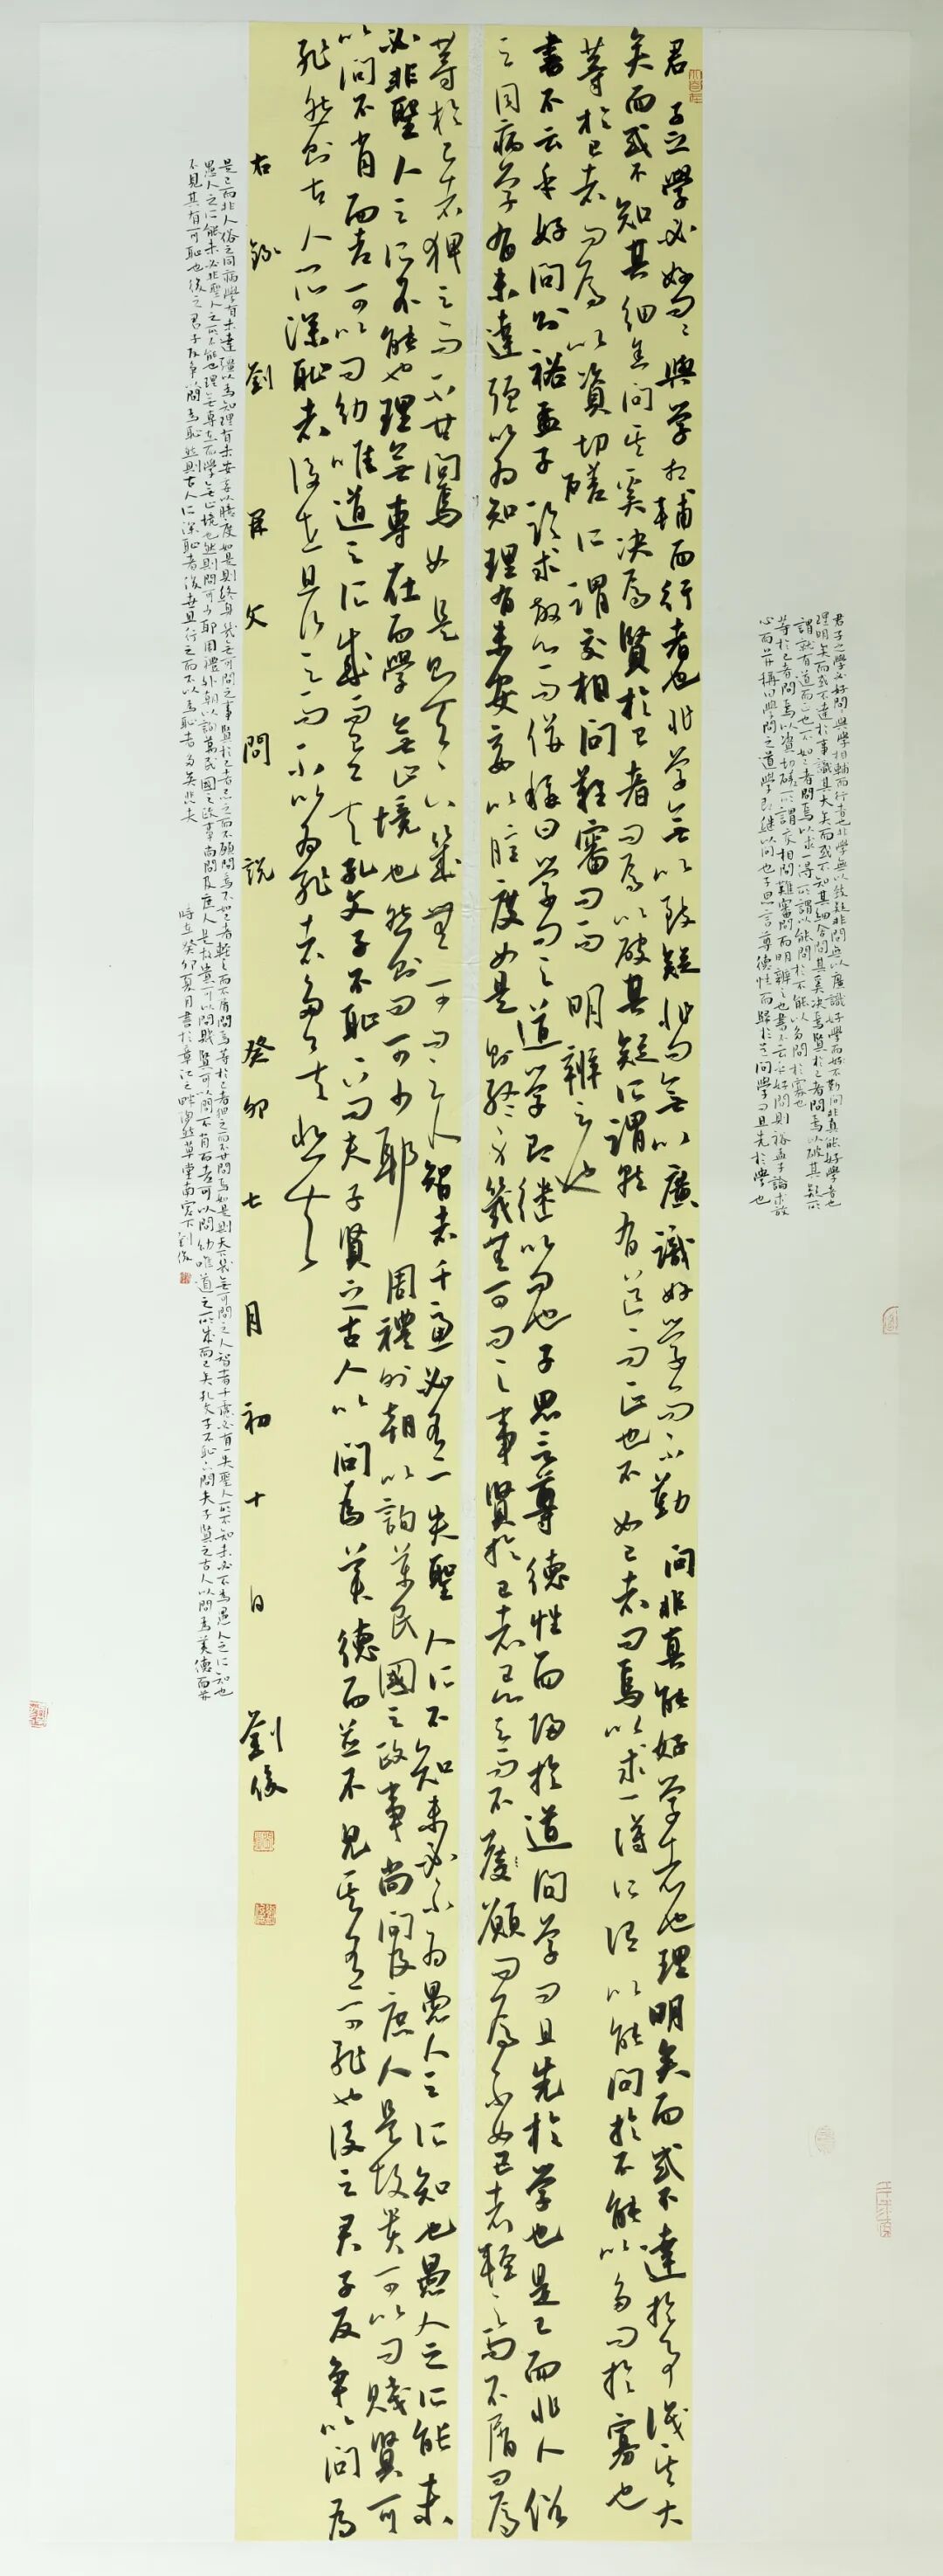 君子之學必好問問與學相輔而行者也非學無以致疑非問無以廣識好學而不勤問非真能好學者也
理明矣而或不達於事識其大矣而或不知其細舍問其奚決焉賢於己者問焉以破其疑所
謂就有道而正也不如己者問焉以求一得所謂以能問於不能以多問於寡也
等於己者問焉以資切磋所謂交相問難審問而明辨之也書不云乎好問則裕孟子論求放
心而並稱曰學問之道學即繼以問也子思言尊德性而歸於道問學問且先於學也
君子之學必好問問與學相輔而行者也非學無以致疑非問無以廣識好學而不勤問非真能好學者也理明矣而或不達於事識其大
矣而或不知其細舍問其奚決焉賢於己者問焉以破其疑所謂就有道而正也不如己者問焉以求一得所謂以能問於不能以多問於寡也
等於己者問焉以資切磋所謂交相問難審問而明辨之也
書不云乎好問則裕孟子論求放心而並稱曰學問之道學即繼以問也子思言尊德性而歸於道問學問且先於學也是己而非人俗
之同病學有未達強以為知理有未安妄以臆度如是則終身幾無可問之事賢於己者忌之而不願問焉不如己者輕之而不屑問焉
等於己者狎之而不甘問焉如是則天下幾無可問之人智者千慮必有一失聖人所不知未必不為愚人之所知也愚人之所能未
必非聖人之所不能也理無專在而學無止境也然則問可少耶周禮外朝以詢萬民國之政事尚問及庶人是故貴可以問賤賢可
以問不肖而老可以問幼唯道之所成而已矣孔文子不恥下問夫子賢之古人以問為美德而並不見其有可恥也後之君子反爭以問為
恥然則古人所深恥者後世且行之而不以為恥者多矣悲夫
右錄劉開文問說癸卯七月初十日劉俊
是己而非人俗之同病學有未達強以為知理有未安妄以臆度如是則終身幾無可問之事賢於己者忌之而不願問焉不如己者輕之而不屑問焉等於己者狎之而不甘問焉如是則天下幾無可問之人智者千慮必有一失聖人所不知未必不為愚人之所知也
愚人之所能未必非聖人之所不能也理無專在而學無止境也然則問可少耶周禮外朝以詢萬民國之政事尚問及庶人是故貴可以問賤賢可以問不肖而老可以問幼唯道之所成而已矣孔文子不恥下問夫子賢之古人以問為美德而並
不見其有可恥也後之君子反爭以問為恥然則古人所深恥者後世且行之而不以為恥者多矣悲夫
時在癸卯夏月書於章江之畔陶然草堂南窗下劉俊